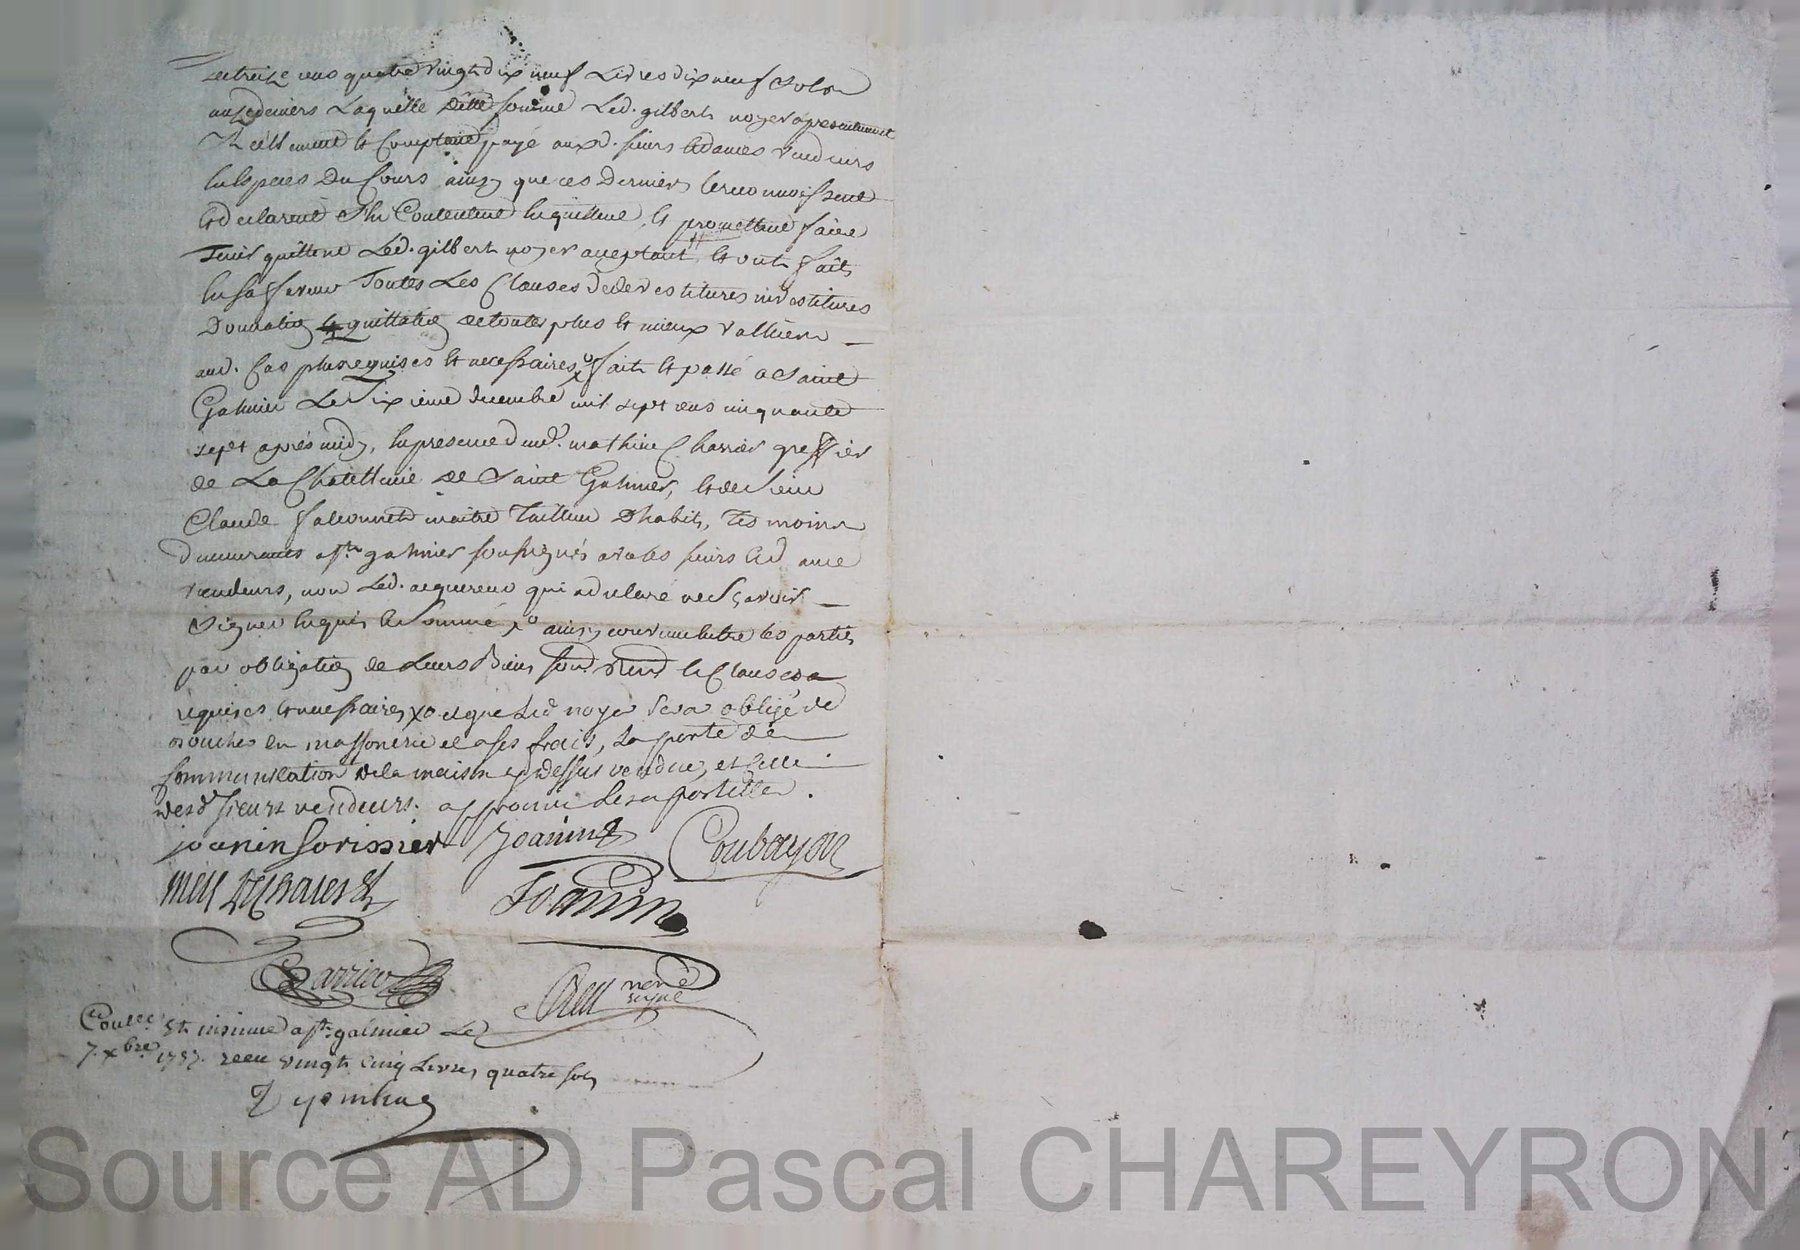 et treize cens quatre vingt dix neuf Livres dix neuf sols
onze deniers Laquelle ditte somme Led. gilbert noyer a presentement
Réellement et Comptant payé auxd. sieurs et dames vendeurs
En Especes Du Cours ainsy que ces Derniers le reconnoissent
et declarent s'En Contentent En quittent et promettent faire
Tenir quittene Led. gilbert noyer acceptant, et ont fait
En sa faveur Toutes Les Clauses de devestitures investitures
Donnation et quittation de toutes plus et mieux vallüe
aud. Cas plus requises et necessaires xo fait et passé a Saint
Galmier Le Sixieme decembre mil sept cens cinquante
sept après midy, En presence de me. mathieu Charrier greffier
de La Chatellenie de Saint Galmier, et de sieur
Claude falconnet maitre Tailleur D'habits, Tesmoins
demeurants a st. galmier soussignés avec les sieurs et dame
vendeurs, non Led. acquereur qui a declaré ne sçavoir
signer Enquis et sommé xo ainsy convenu Entre les parties
par obligation de Leurs Biens soud. Rend. et Clauses
requises et necessaires xo et que Led noyer sera obligé de
boucher en massonerie et a ses frais, la porte de
Communication de la maison cy dessus vendue, et celle
desd sieurs vendeurs. approuvé les apostilles.
joanin sorissier Joanin Coubayon
Joanin
Charrier
Controllé Et insinué a st. galmier Le
7. xbre 1757. receu vingt cinq Livres quatre sols
Source AD Pascal CHAREYRON